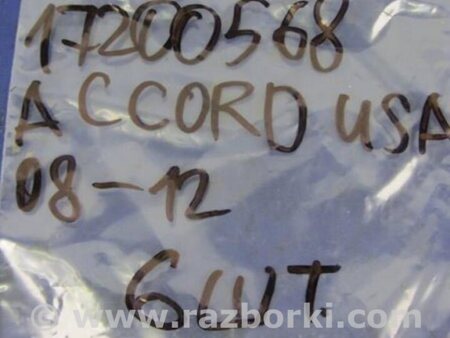 17200568
ACCORD USA
08-12
6 ШТ
© www.razborki.com